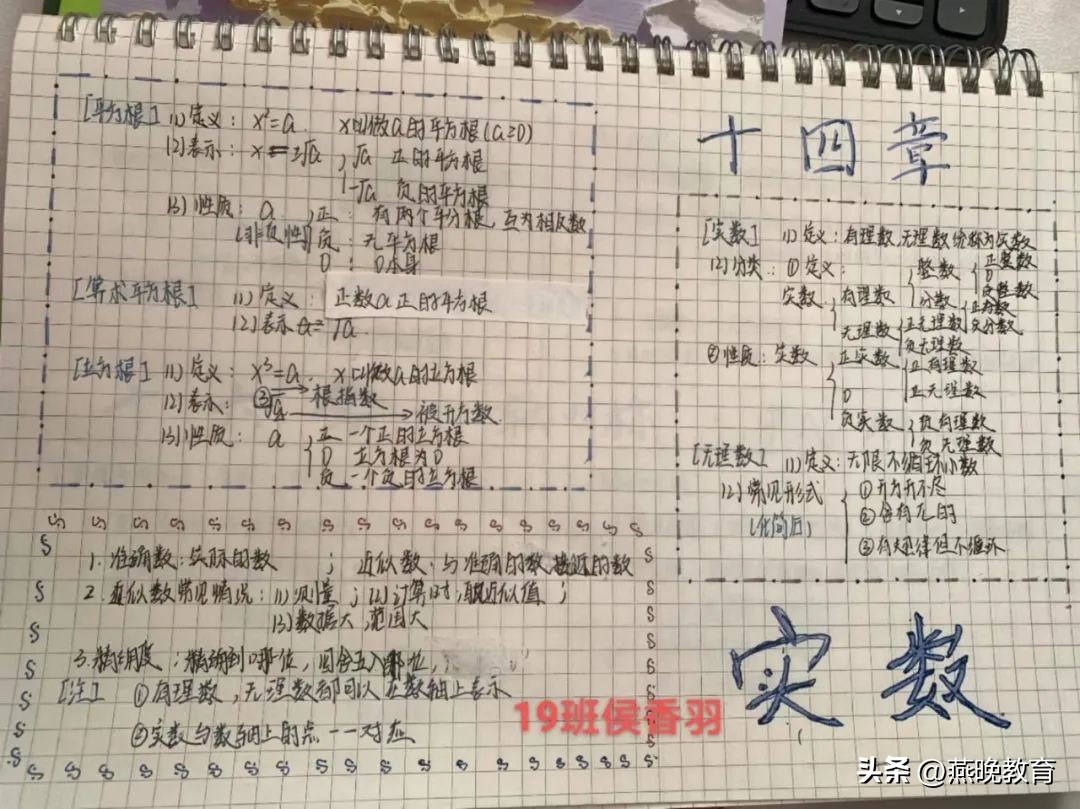 [平方根] (1)定义: x²=a. x叫做a的平方根(a≥0)
(2)表示: x=±√a, √a 正的平方根
-√a 负的平方根
(3)性质: a 正: 有两个平分根, 互为相反数
(非负性) 负: 无平方根
0: 0本身
[算术平方根] (1)定义: 正数a正的平方根
(2)表示 a=√a.
[立方根] (1)定义: x³=a. x叫做a的立方根
(2)表示: ③√a → 根指数
→ 被开方数
(3)性质: a 正 一个正的立方根
0 立方根为0
负 一个负的立方根
1.准确数: 实际的数 ; 近似数: 与准确的数接近的数
2.近似数常见情况: (1)测量; (2)计算时,取近似值;
(3)数据大,范围大
3.精确度: 精确到哪位, 四舍五入那位,
[注] ①有理数,无理数都可以在数轴上表示
②实数与数轴上的点一一对应
十四章
[实数] (1)定义: 有理数,无理数统称为实数
(2)分类: ①定义:
实数 有理数 整数 正整数
0
负整数
分数 正分数
负分数
无理数 正无理数
负无理数
②性质: 实数 正实数 正有理数
正无理数
0
负实数 负有理数
负无理数
[无理数] (1)定义: 无限不循环小数
(2)常见形式 ①开方开不尽
(化简后) ②含有π的
③有规律但不循环
实数
19班侯香羽
头条 @燕晚教育